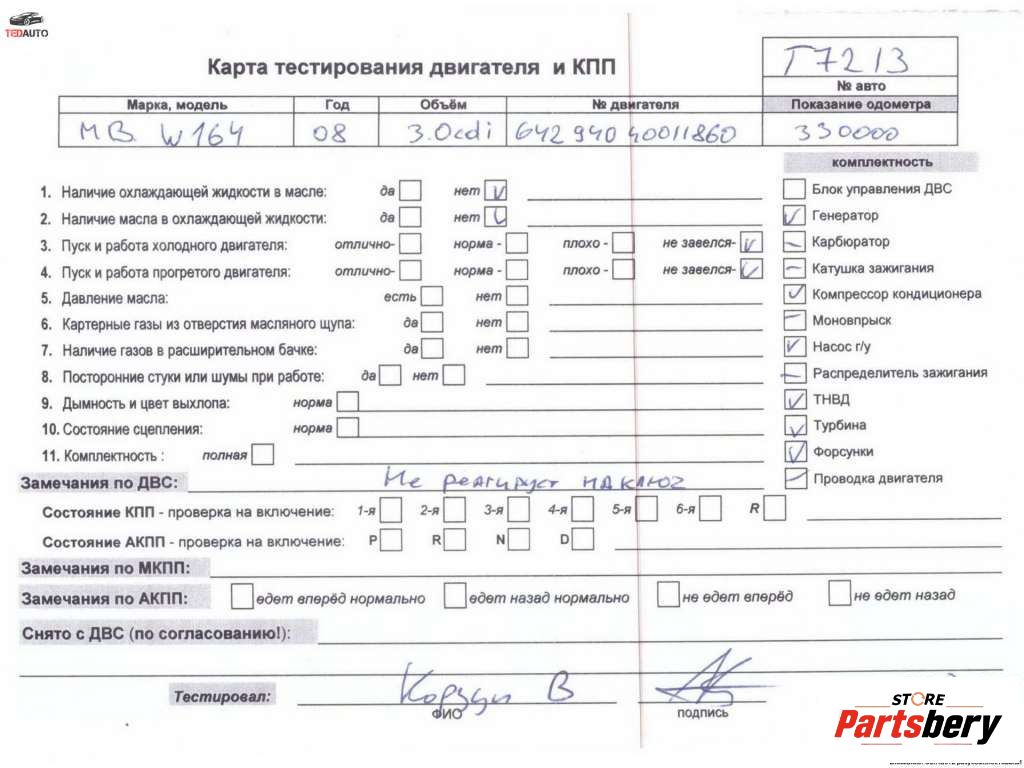 TEDAUTO
Карта тестирования двигателя и КПП
T7213
№ авто
Марка, модель Год Объём № двигателя Показание одометра
MB W164 08 3.0cdi 642 940 40011860 330000
комплектность
1. Наличие охлаждающей жидкости в масле: да нет
Блок управления ДВС
2. Наличие масла в охлаждающей жидкости: да нет
Генератор
3. Пуск и работа холодного двигателя: отлично- норма - плохо - не завелся-
Карбюратор
4. Пуск и работа прогретого двигателя: отлично- норма - плохо - не завелся-
Катушка зажигания
5. Давление масла: есть нет
Компрессор кондиционера
6. Картерные газы из отверстия масляного щупа: да нет
Моновпрыск
7. Наличие газов в расширительном бачке: да нет
Насос г/у
8. Посторонние стуки или шумы при работе: да нет
Распределитель зажигания
9. Дымность и цвет выхлопа: норма
ТНВД
10. Состояние сцепления: норма
Турбина
11. Комплектность : полная
Форсунки
Замечания по ДВС: Не реагирует на ключ
Проводка двигателя
Состояние КПП - проверка на включение: 1-я 2-я 3-я 4-я 5-я 6-я R
Состояние АКПП - проверка на включение: P R N D
Замечания по МКПП:
Замечания по АКПП: едет вперёд нормально едет назад нормально не едет вперёд не едет назад
Снято с ДВС (по согласованию!):
Тестировал: В
ФИО подпись
STORE
Partsbery